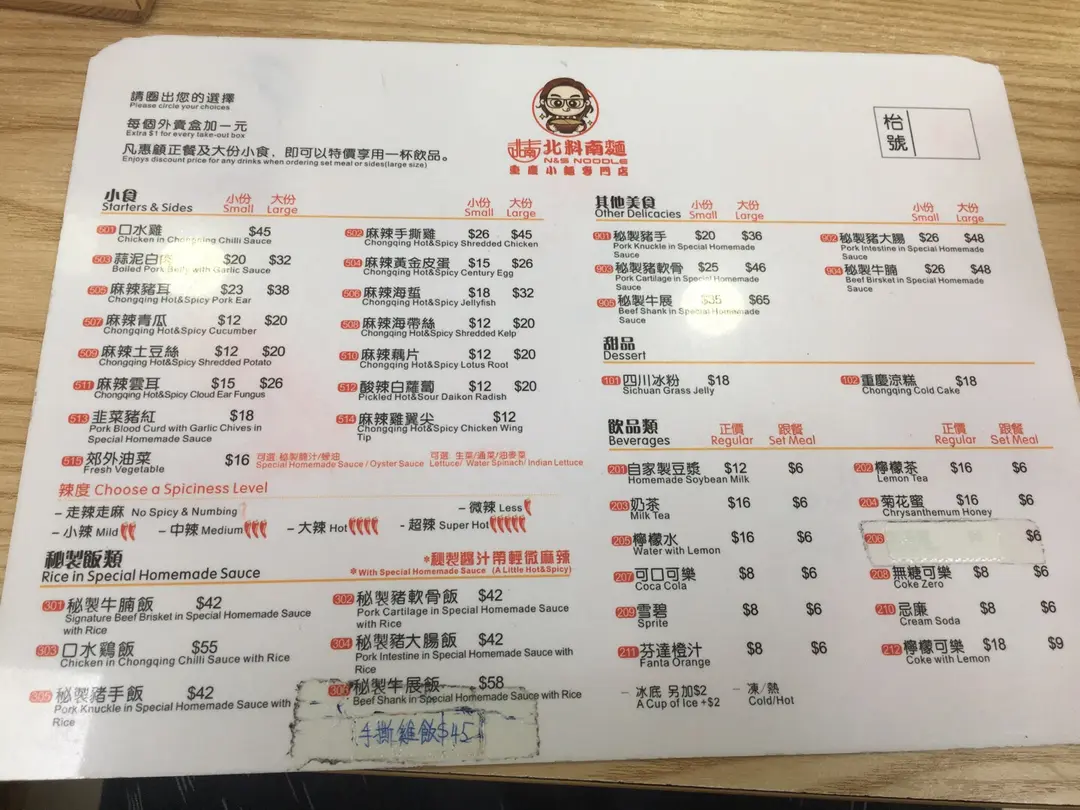 請圈出您的選擇
Please circle your choices
每個外賣盒加一元
Extra $1 for every take-out box
凡惠顧正餐及大份小食，即可以特價享用一杯飲品。
Enjoys discount price for any drinks when ordering set meal or sides(large size)
北料南麵
N&S NOODLE
重慶小麵專門店
枱號
小食 小份 大份 小份 大份
Starters & Sides Small Large Small Large
501 口水雞 $45
Chicken in Chongqing Chilli Sauce
502 麻辣手撕雞 $26 $45
Chongqing Hot&Spicy Shredded Chicken
503 蒜泥白肉 $20 $32
Boiled Pork Belly with Garlic Sauce
504 麻辣黃金皮蛋 $15 $26
Chongqing Hot&Spicy Century Egg
505 麻辣豬耳 $23 $38
Chongqing Hot&Spicy Pork Ear
506 麻辣海蜇 $18 $32
Chongqing Hot&Spicy Jellyfish
507 麻辣青瓜 $12 $20
Chongqing Hot&Spicy Cucumber
508 麻辣海帶絲 $12 $20
Chongqing Hot&Spicy Shredded Kelp
509 麻辣土豆絲 $12 $20
Chongqing Hot&Spicy Shredded Potato
510 麻辣藕片 $12 $20
Chongqing Hot&Spicy Lotus Root
511 麻辣雲耳 $15 $26
Chongqing Hot&Spicy Cloud Ear Fungus
512 酸辣白蘿蔔 $12 $20
Pickled Hot&Sour Daikon Radish
513 韭菜豬紅 $18
Pork Blood Curd with Garlic Chives in
Special Homemade Sauce
514 麻辣雞翼尖 $12
Chongqing Hot&Spicy Chicken Wing
Tip
515 郊外油菜 $16 可選 秘製醬汁/蠔油 可選 生菜/通菜/油麥菜
Fresh Vegetable Special Homemade Sauce / Oyster Sauce Lettuce/ Water Spinach/ Indian Lettuce
辣度 Choose a Spiciness Level
– 走辣走麻 No Spicy & Numbing – 微辣 Less
– 小辣 Mild – 中辣 Medium – 大辣 Hot – 超辣 Super Hot
秘製飯類 *秘製醬汁帶輕微麻辣
Rice in Special Homemade Sauce *With Special Homemade Sauce (A Little Hot&Spicy)
301 秘製牛腩飯 $42
Signature Beef Brisket in Special Homemade Sauce
with Rice
302 秘製豬軟骨飯 $42
Pork Cartilage in Special Homemade Sauce
with Rice
303 口水鷄飯 $55
Chicken in Chongqing Chilli Sauce with Rice
304 秘製豬大腸飯 $42
Pork Intestine in Special Homemade Sauce with
Rice
305 秘製豬手飯 $42
Pork Knuckle in Special Homemade Sauce with
Rice
306 秘製牛展飯 $58
Beef Shank in Special Homemade Sauce with Rice
手撕雞飯$45
其他美食 小份 大份 小份 大份
Other Delicacies Small Large Small Large
901 秘製豬手 $20 $36
Pork Knuckle in Special Homemade
Sauce
902 秘製豬大腸 $26 $48
Pork Intestine in Special Homemade
Sauce
903 秘製豬軟骨 $25 $46
Pork Cartilage in Special Homemade
Sauce
904 秘製牛腩 $26 $48
Beef Birsket in Special Homemade
Sauce
905 秘製牛展 $35 $65
Beef Shank in Special Homemade
Sauce
甜品
Dessert
101 四川冰粉 $18
Sichuan Grass Jelly
102 重慶涼糕 $18
Chongqing Cold Cake
飲品類 正價 跟餐 正價 跟餐
Beverages Regular Set Meal Regular Set Meal
201 自家製豆漿 $12 $6
Homemade Soybean Milk
202 檸檬茶 $16 $6
Lemon Tea
203 奶茶 $16 $6
Milk Tea
204 菊花蜜 $16 $6
Chrysanthemum Honey
205 檸檬水 $16 $6
Water with Lemon
206 $6
207 可口可樂 $8 $6
Coca Cola
208 無糖可樂 $8 $6
Coke Zero
209 雪碧 $8 $6
Sprite
210 忌廉 $8 $6
Cream Soda
211 芬達橙汁 $8 $6
Fanta Orange
212 檸檬可樂 $18 $9
Coke with Lemon
– 冰底 另加$2 – 凍/熱
A Cup of Ice +$2 Cold/Hot